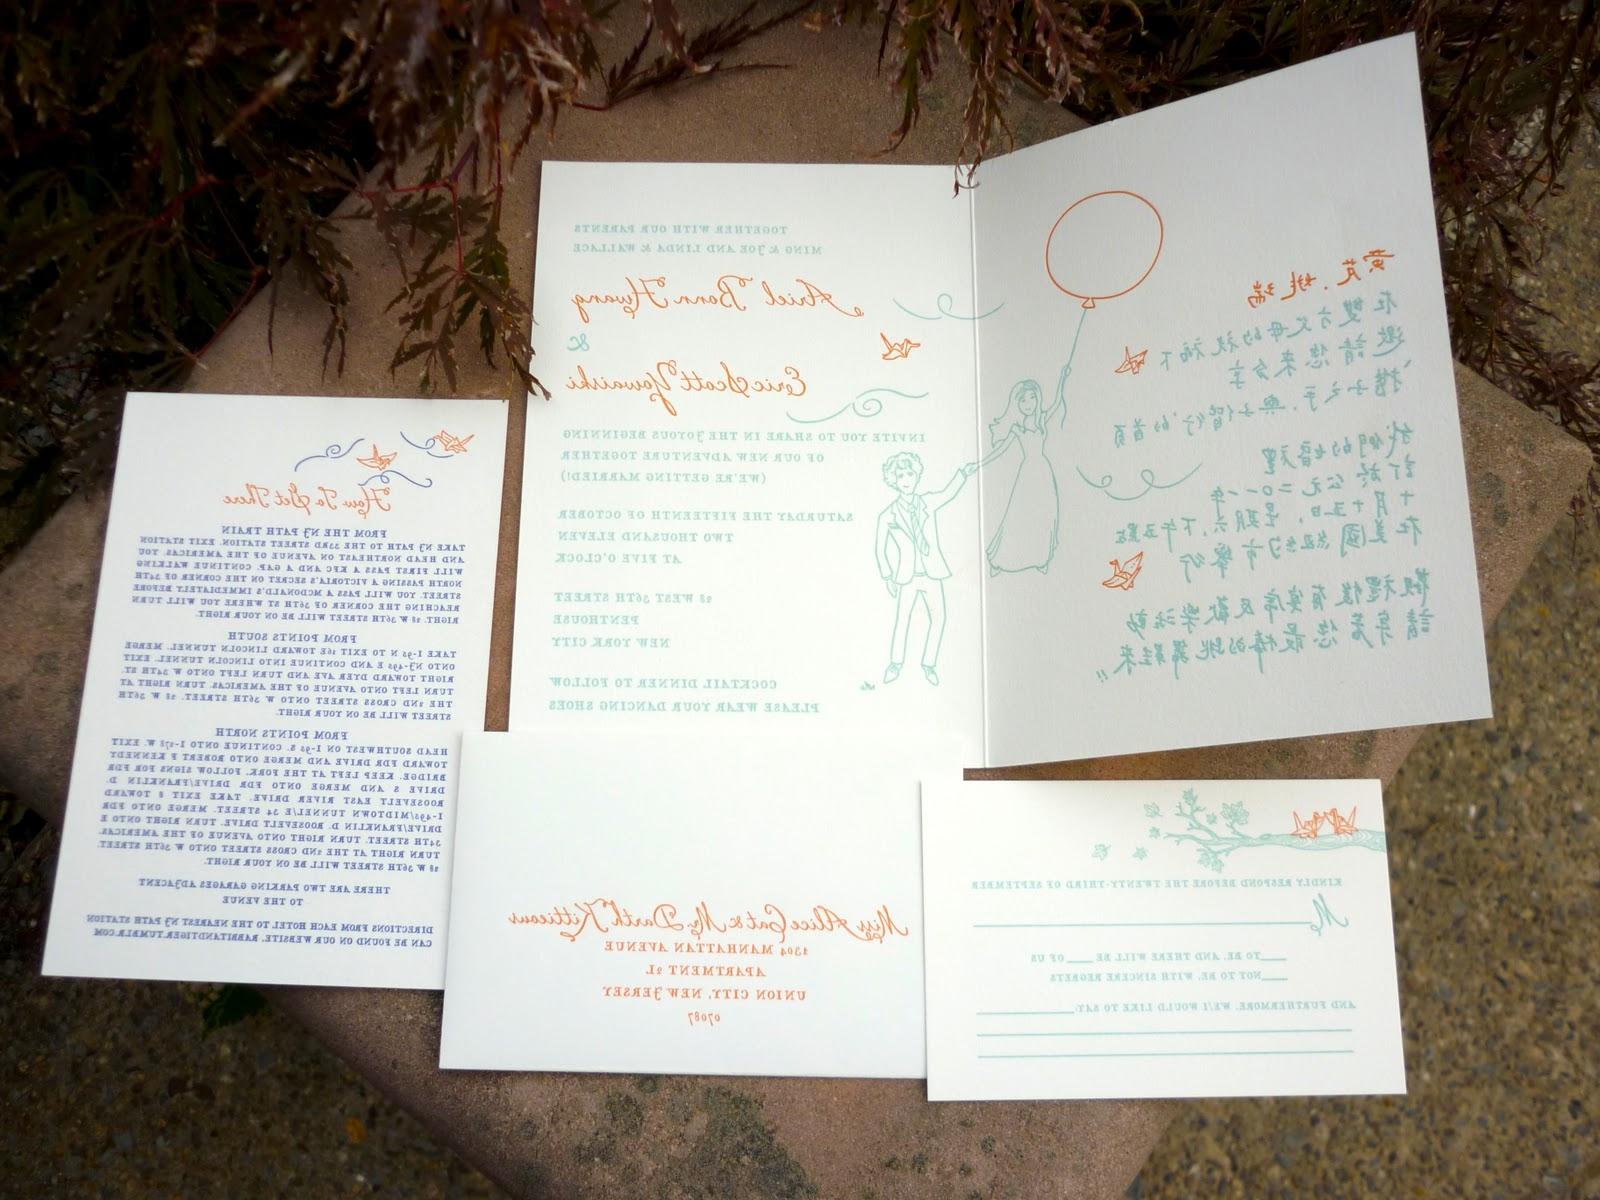 TOGETHER WITH OUR PARENTS
MING & JOE AND LINDA & WALLACE
Ariel Bonn Hwang
&
Eric Scott Yowaiski
INVITE YOU TO SHARE IN THE JOYOUS BEGINNING
OF OUR NEW ADVENTURE TOGETHER
(WE'RE GETTING MARRIED!)
SATURDAY THE FIFTEENTH OF OCTOBER
TWO THOUSAND ELEVEN
AT FIVE O'CLOCK
28 WEST 36TH STREET
PENTHOUSE
NEW YORK CITY
COCKTAIL DINNER TO FOLLOW
PLEASE WEAR YOUR DANCING SHOES
在雙方父母的祝福下
邀請您來分享
「携子之手,與子偕行」的首頁
我們的婚禮
訂於公元二〇一一年
十月十五日,星期六,下午五點
在美國紐約市舉行
觀禮後有宴席及歡樂活動
請穿著您最棒的跳舞鞋來!!
How To Get There
FROM THE NJ PATH TRAIN
TAKE NJ PATH TO THE 33RD STREET STATION. EXIT STATION
AND HEAD NORTHEAST ON AVENUE OF THE AMERICAS. YOU
WILL FIRST PASS A KFC AND A GAP. CONTINUE WALKING
NORTH PASSING A VICTORIA'S SECRET ON THE CORNER OF 34TH
STREET. YOU WILL PASS A MCDONALD'S IMMEDIATELY BEFORE
REACHING THE CORNER OF 36TH ST WHERE YOU WILL TURN
RIGHT. 28 W 36TH STREET WILL BE ON YOUR RIGHT.
FROM POINTS SOUTH
TAKE I-95 N TO EXIT 16E TOWARD LINCOLN TUNNEL. MERGE
ONTO NJ-495 E AND CONTINUE INTO LINCOLN TUNNEL. KEEP
RIGHT TOWARD DYER AVE AND TURN LEFT ONTO W 34TH ST.
TURN LEFT ONTO AVENUE OF THE AMERICAS. TURN RIGHT AT
THE 2ND CROSS STREET ONTO W 36TH STREET. 28 W 36TH
STREET WILL BE ON YOUR RIGHT.
FROM POINTS NORTH
HEAD SOUTHWEST ON I-95 S. CONTINUE ONTO I-278 W. EXIT
TOWARD FDR DRIVE AND MERGE ONTO ROBERT F KENNEDY
BRIDGE. KEEP LEFT AT THE FORK, FOLLOW SIGNS FOR FDR
DRIVE S AND MERGE ONTO FDR DRIVE/FRANKLIN D.
ROOSEVELT EAST RIVER DRIVE. TAKE EXIT 8 TOWARD
I-495/MIDTOWN TUNNEL/E 34 STREET. MERGE ONTO FDR
DRIVE/FRANKLIN D. ROOSEVELT DRIVE. TURN RIGHT ONTO E
34TH STREET. TURN RIGHT ONTO AVENUE OF THE AMERICAS.
TURN RIGHT AT THE 2ND CROSS STREET ONTO W 36TH STREET.
28 W 36TH STREET WILL BE ON YOUR RIGHT.
THERE ARE TWO PARKING GARAGES ADJACENT
TO THE
VENUE
DIRECTIONS FROM EACH HOTEL TO THE NEAREST NJ PATH STATION
CAN BE FOUND ON OUR WEBSITE. RABBITANDTIGER.TUMBLR.COM
Miss Alice Cat & Mr. Darth Kitticous
1304 MANHATTAN AVENUE
APARTMENT 2L
UNION CITY, NEW JERSEY
07087
KINDLY RESPOND BEFORE THE TWENTY-THIRD OF SEPTEMBER
M
TO BE. AND THERE WILL BE OF US
NOT TO BE. WITH SINCERE REGRETS
AND FURTHERMORE, WE/I WOULD LIKE TO SAY: